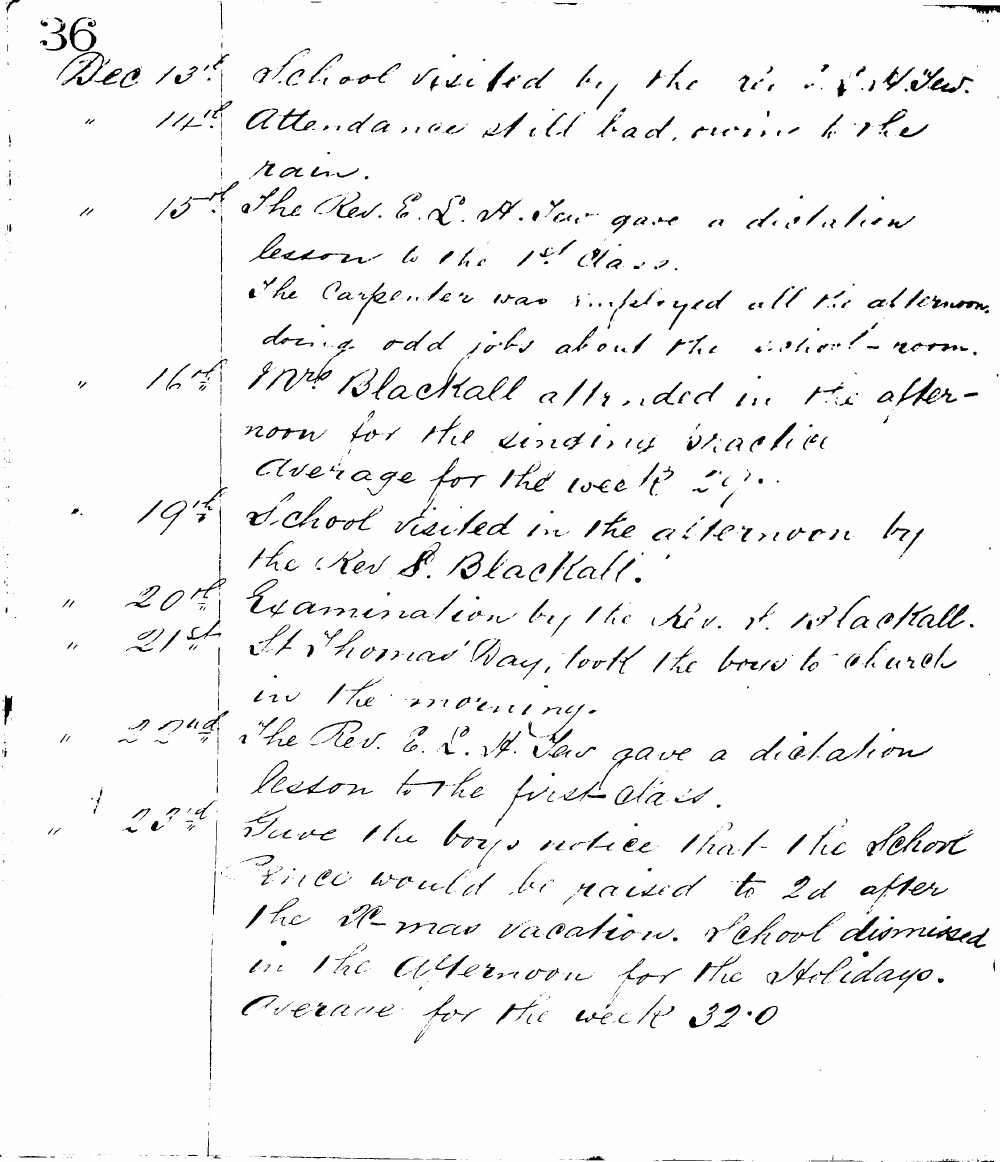 36
Dec 13th School visited by the rev E. L. H. Tew.
" 14th Attendance still bad, owing to the
rain.
" 15th The Rev. E. L. H. Tew gave a dictation
lesson to the 1st Class.
The Carpenter was employed all the afternoon,
doing odd jobs about the school-room.
" 16th Mrs Blackall attended in the after-
noon for the singing practice
Average for the week 29.
" 19th School visited in the afternoon by
the Rev S. Blackall.
" 20th Examination by the Rev. S. Blackall.
" 21st St Thomas' Day, took the boys to church
in the morning.
" 22nd The Rev. E. L. H. Tew gave a dictation
lesson to the first class.
" 23rd Gave the boys notice that the School
Pence would be raised to 2d after
the X-mas vacation. School dismissed
in the Afternoon for the Holidays.
Average for the week 32.0